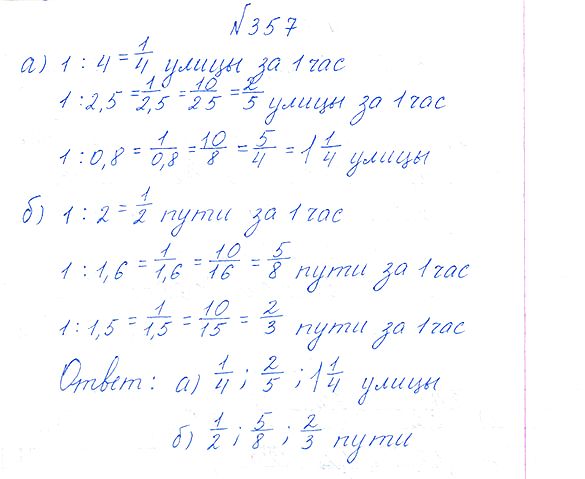 №357
а) 1 : 4 = 1/4 улицы за 1 час
1 : 2,5 = 1/2,5 = 10/25 = 2/5 улицы за 1 час
1 : 0,8 = 1/0,8 = 10/8 = 5/4 = 1 1/4 улицы
б) 1 : 2 = 1/2 пути за 1 час
1 : 1,6 = 1/1,6 = 10/16 = 5/8 пути за 1 час
1 : 1,5 = 1/1,5 = 10/15 = 2/3 пути за 1 час
Ответ: а) 1/4 ; 2/5 ; 1 1/4 улицы
б) 1/2 ; 5/8 ; 2/3 пути